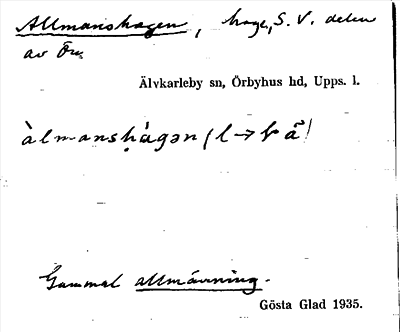 Allmanshagen, hage, S.V. delen
av Ön.
Älvkarleby sn, Örbyhus hd, Upps. l.
àlmansḥágən (l→
Gammal allmänning.
Gösta Glad 1935.